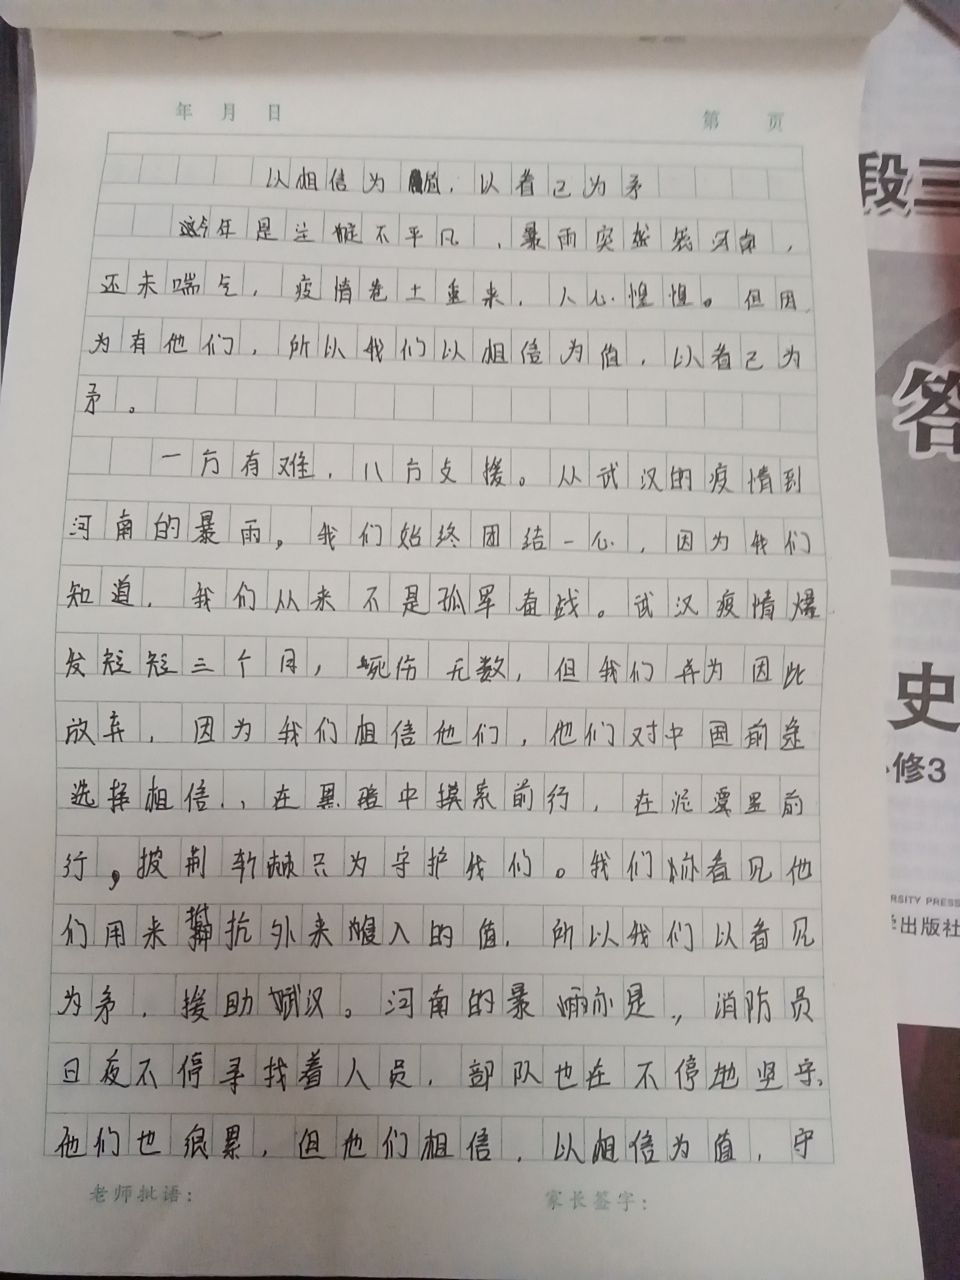 年 月 日 第 页
以相信为值，以看己为矛
今年是注定不平凡，暴雨突袭河南，
还未喘气，疫情卷土重来，人心惶惶。但因
为有他们，所以我们以相信为值，以看己为
矛。
一方有难，八方支援。从武汉的疫情到
河南的暴雨，我们始终团结一心，因为我们
知道，我们从来不是孤军奋战。武汉疫情爆
发短短三个月，死伤无数，但我们并为因此
放弃，因为我们相信他们，他们对中国前途
选择相信，在黑暗中摸索前行，在泥里前
行，披荆斩棘只为守护我们。我们看见他
们用来抵抗外来入的值，所以我们以看见
为矛，援助武汉。河南的暴雨亦是，消防员
日夜不停寻找着人员，部队也在不停地坚守、
他们也很累，但他们相信，以相信为值，守
老师批语： 家长签字：
段三
答
史
修3
RSITY PRESS
学出版社